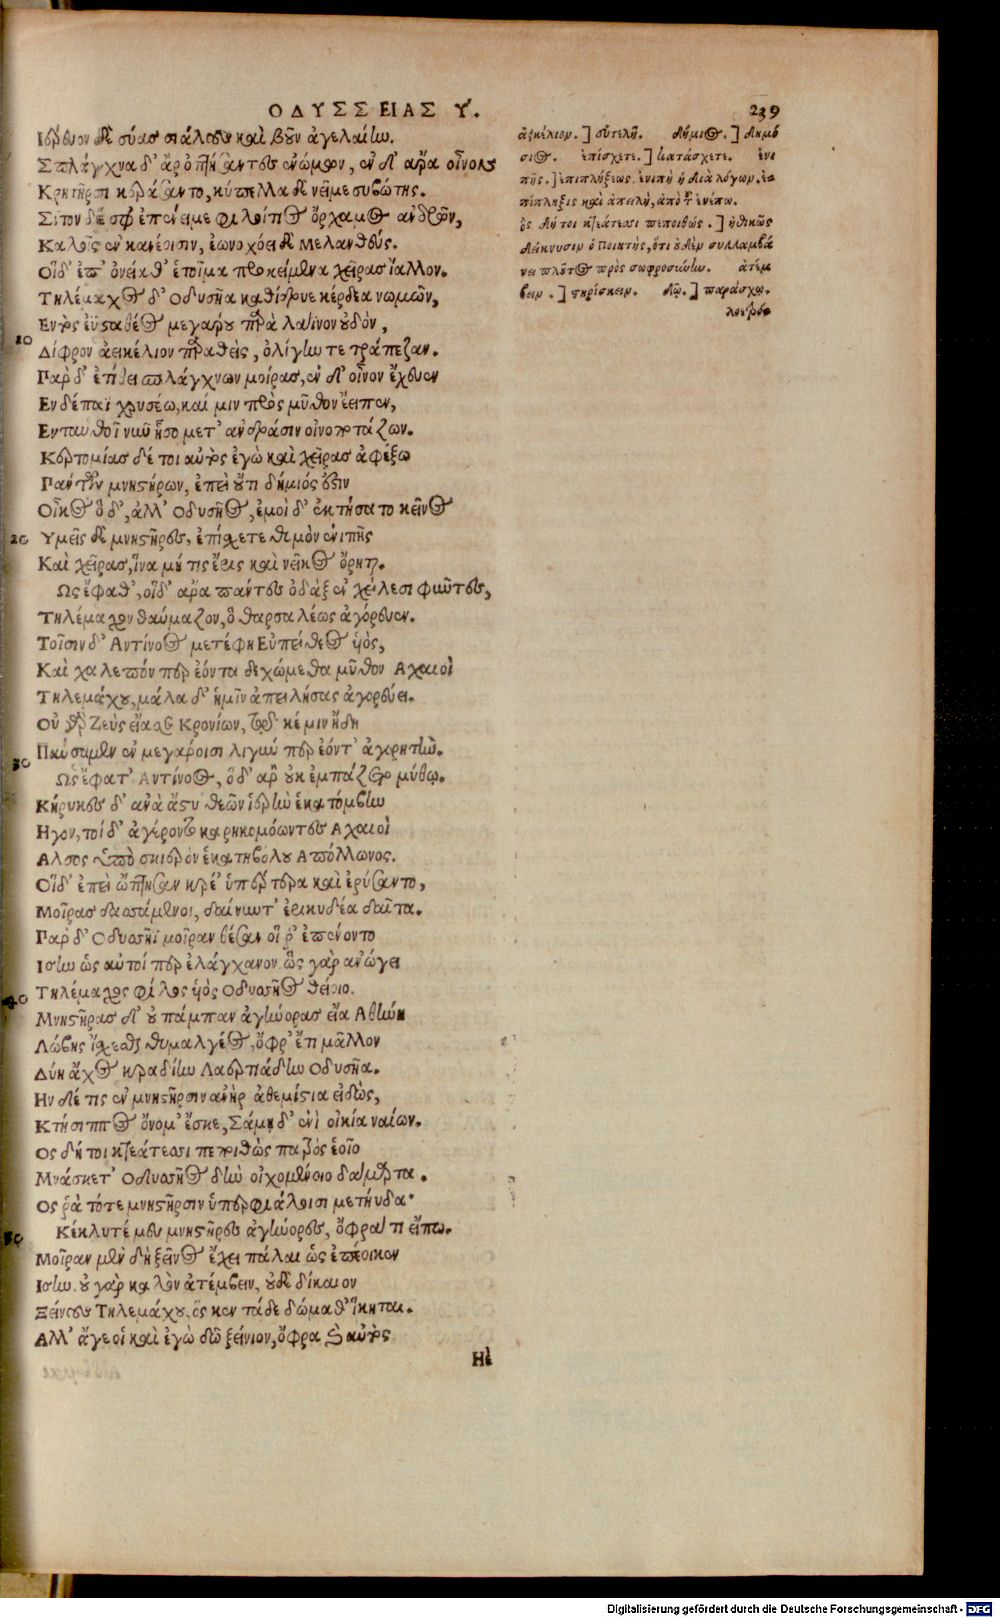 ΟΔΥΣΣΕΙΑΣ Υ.
239
Ιέρευον δὲ σύας σιάλους καὶ βοῦν ἀγελαίην.
Σπλάγχνα δ' ἄρ ὀπτήσαντες ἐνώμων, ἐν δέ ἄρα οἶνον
Κρητῆρσι κερόωντο, κύπελλα δὲ νεῖμε συβώτης.
Σῖτον δέ σφ' ἐπένειμε Φιλοίτιος ὄρχαμος ἀνδρῶν,
Καλοῖς ἐν κανέοισιν, ἐωνοχόει δὲ Μελανθεύς.
Οἱ δ' ἐπ' ὀνείαθ' ἑτοῖμα προκείμενα χεῖρας ἴαλλον.
Τηλέμαχος δ' Οδυσῆα καθίδρυε κέρδεα νωμῶν,
Εντὸς ἐϋσταθέος μεγάρου παρὰ λαϊνον οὐδὸν,
10
Δίφρον ἀεικέλιον παραθεὶς, ὀλίγην τε τράπεζαν.
Παρ δ' ἐτίθει σπλάγχνων μοίρας, ἐν δ' οἶνον ἔχευεν
Εν δέπαϊ χρυσέῳ, καί μιν πρὸς μῦθον ἔειπεν,
Ενταυθοῖ νῦν ἧσο μετ' ἀνδράσιν οἰνοποτάζων.
Κερτομίας δέ τοι αὐτὸς ἐγὼ καὶ χεῖρας ἀφέξω
Πάντων μνηστήρων, ἐπεὶ οὔτι δήμιός ἐστιν
Οἶκος ὅδ', ἀλλ' Οδυσῆος, ἐμοὶ δ' ἐκτήσατο κεῖνος
20
Υμεῖς δὲ μνηστῆρες, ἐπίσχετε θυμὸν ἐνιπῆς
Καὶ χειρῶν, ἵνα μή τις ἔρις καὶ νεῖκος ὄρηται.
Ως ἔφαθ', οἱ δ' ἄρα πάντες ὀδὰξ ἐν χείλεσι φῦντες,
Τηλέμαχον θαύμαζον, ὃ θαρσαλέως ἀγόρευεν.
Τοῖσιν δ' Αντίνοος μετέφη Εὐπείθεος υἱὸς,
Καὶ χαλεπόν περ ἐόντα δεχώμεθα μῦθον Αχαιοὶ
Τηλεμάχου, μάλα δ' ἡμῖν ἀπειλήσας ἀγορεύει.
Οὐ γὰρ Ζεὺς εἴασε Κρονίων, τῷ κέ μιν ἤδη
30
Παύσαμεν ἐν μεγάροισι λιγύν περ ἐόντ' ἀγορητήν.
Ως ἔφατ' Αντίνοος, ὁ δ' ἄρ οὐκ ἐμπάζετο μύθων.
Κήρυκες δ' ἀνὰ ἄστυ θεῶν ἱερὴν ἑκατόμβην
Ηγον, τοὶ δ' ἀγέροντο καρηκομόωντες Αχαιοὶ
Αλσος ὕπο σκιερὸν ἑκατηβόλου Απόλλωνος.
Οἱ δ' ἐπεὶ ὤπτησαν κρέ' ὑπέρτερα καὶ ἐρύσαντο,
Μοίρας δασσάμενοι, δαίνυντ' ἐρικυδέα δαῖτα.
Παρ δ' Οδυσσῆϊ μοῖραν θέσαν οἵ ῥ' ἐπένοντο
Ισην ὡς αὐτοί περ ἐλάγχανον ὣς γὰρ ἀνώγει
40
Τηλέμαχος φίλος υἱὸς Οδυσσῆος θείοιο.
Μνηστῆρας δ' οὐ πάμπαν ἀγήνορας εἴα Αθήνη
Λώβης ἴσχεσθαι θυμαλγέος, ὄφρ' ἔτι μᾶλλον
Δύη ἄχος κραδίην Λαερτιάδην Οδυσῆα.
Ην δέ τις ἐν μνηστῆρσιν ἀνὴρ ἀθεμίστια εἰδὼς,
Κτήσιππος ὄνομ' ἔσκε, Σάμῃ δ' ἐνὶ οἰκία ναίων.
Ος δή τοι κτεάτεσσι πεποιθὼς πατρὸς ἑοῖο
Μνάσκετ' Οδυσσῆος δὴν οἰχομένοιο δάμαρτα.
Ος ῥὰ τότε μνηστῆρσιν ὑπερφιάλοισι μετηύδα·
50
Κέκλυτέ μευ μνηστῆρες ἀγήνορες, ὄφρά τι εἴπω.
Μοῖραν μὲν δὴ ξεῖνος ἔχει πάλαι ὡς ἐπέοικεν
Ισην. οὐ γὰρ καλὸν ἀτέμβειν, οὐδὲ δίκαιον
Ξείνους Τηλεμάχου, ὅς κεν τάδε δώμαθ' ἵκηται.
Αλλ' ἄγε οἱ καὶ ἐγὼ δῶ ξείνιον, ὄφρα καὶ αὐτὸς
Ηὲ
ἀεικέλιον.] εὐτελῆ. δήμιος.] δημό
σιος. ἐπίσχετε.] κατάσχετε. ἐνι
πῆς.] ἐπιπλήξεως. ἐνιπὴ ἡ διὰ λόγων. ἐ
πίπληξις καὶ ἀπειλὴ, ἀπὸ τοῦ ἐνέπω.
ὃς δή τοι κτεάτεσσι πεποιθώς.] ἠθικῶς
δείκνυσιν ὁ Ποιητὴς, ὅτι οὐδὲν συλλαμβά
νει πλοῦτος πρὸς σωφροσύνην. ἀτέμ
βειν.] στερίσκειν. δῶ.] παράσχω.
λοετρο
Digitalisierung gefördert durch die Deutsche Forschungsgemeinschaft - DFG